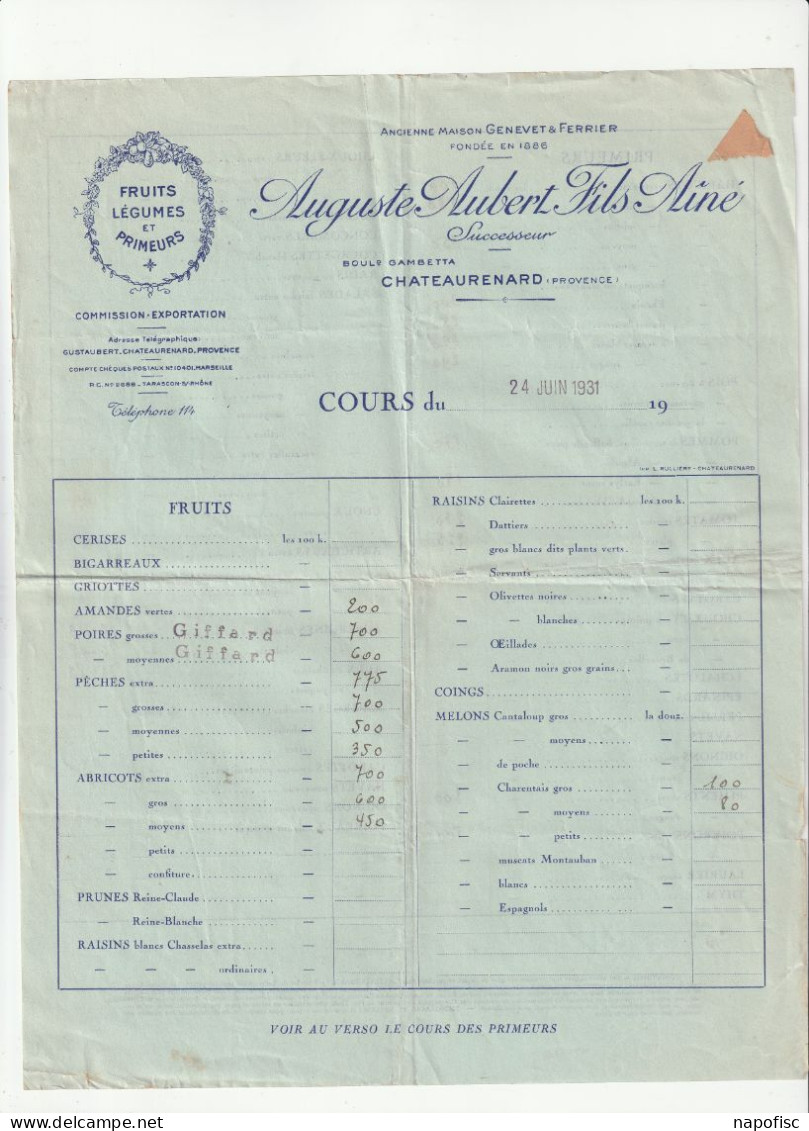 ANCIENNE MAISON GENEVET & FERRIER
FONDÉE EN 1886
Auguste Aubert Fils Aîné
Successeur
BOULD GAMBETTA
CHATEAURENARD (PROVENCE)
FRUITS
LÉGUMES
ET
PRIMEURS
COMMISSION-EXPORTATION
Adresse Télégraphique:
GUSTAUBERT.CHATEAURENARD.PROVENCE
COMPTE CHÈQUES POSTAUX No 10401.MARSEILLE
R.C. No 2698 - TARASCON-S/-RHÔNE
Téléphone 114
COURS du 24 JUIN 1931 19
IMP. L. RULLIÈRE - CHATEAURENARD
FRUITS
CERISES les 100 k.
BIGARREAUX —
GRIOTTES —
AMANDES vertes — 200
POIRES grosses Giffard — 700
— moyennes Giffard — 600
PÊCHES extra — 775
— grosses — 700
— moyennes — 500
— petites — 350
ABRICOTS extra — 700
— gros — 600
— moyens — 450
— petits —
— confiture —
PRUNES Reine-Claude —
— Reine-Blanche —
RAISINS blancs Chasselas extra —
— — — ordinaires —
RAISINS Clairettes les 100 k.
— Dattiers —
— gros blancs dits plants verts. —
— Servants —
— Olivettes noires —
— — blanches —
— Œillades —
— Aramon noirs gros grains —
COINGS —
MELONS Cantaloup gros la douz.
— — moyens —
— de poche —
— Charentais gros — 100
— — moyens — 80
— — petits —
— muscats Montauban —
— blancs —
— Espagnols —
VOIR AU VERSO LE COURS DES PRIMEURS
napofisc